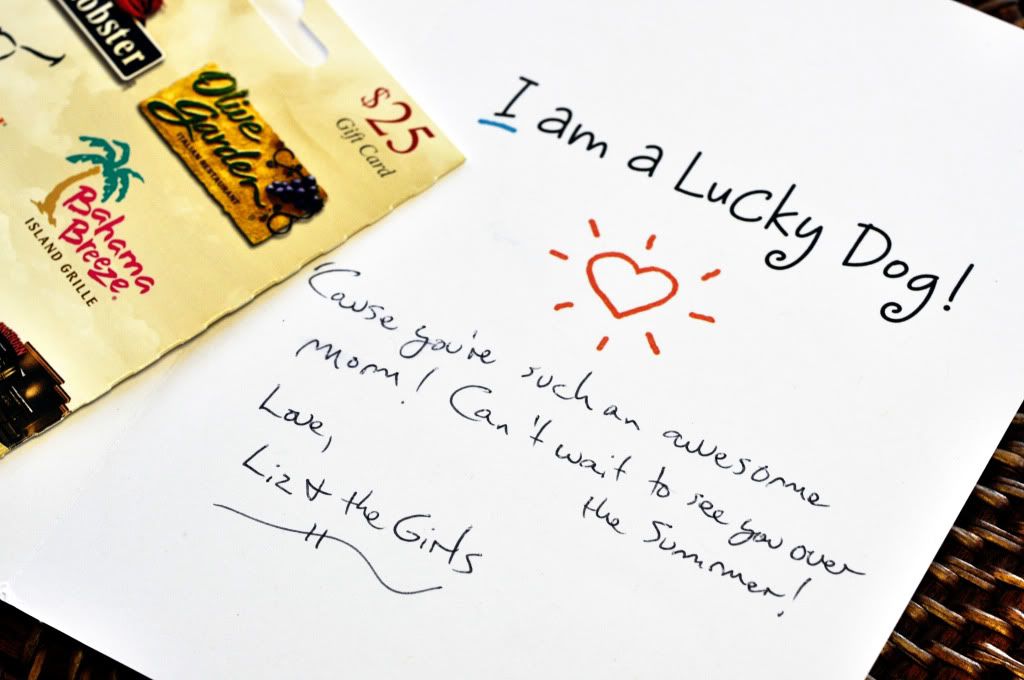 obster
Olive
Garden
ITALIAN RESTAURANT
$25
Gift Card
Bahama
Breeze
ISLAND GRILLE
I am a Lucky Dog!
'Cause you're such an awesome
Mom! Can't wait to see you over
the Summer!
Love,
Liz & the Girls